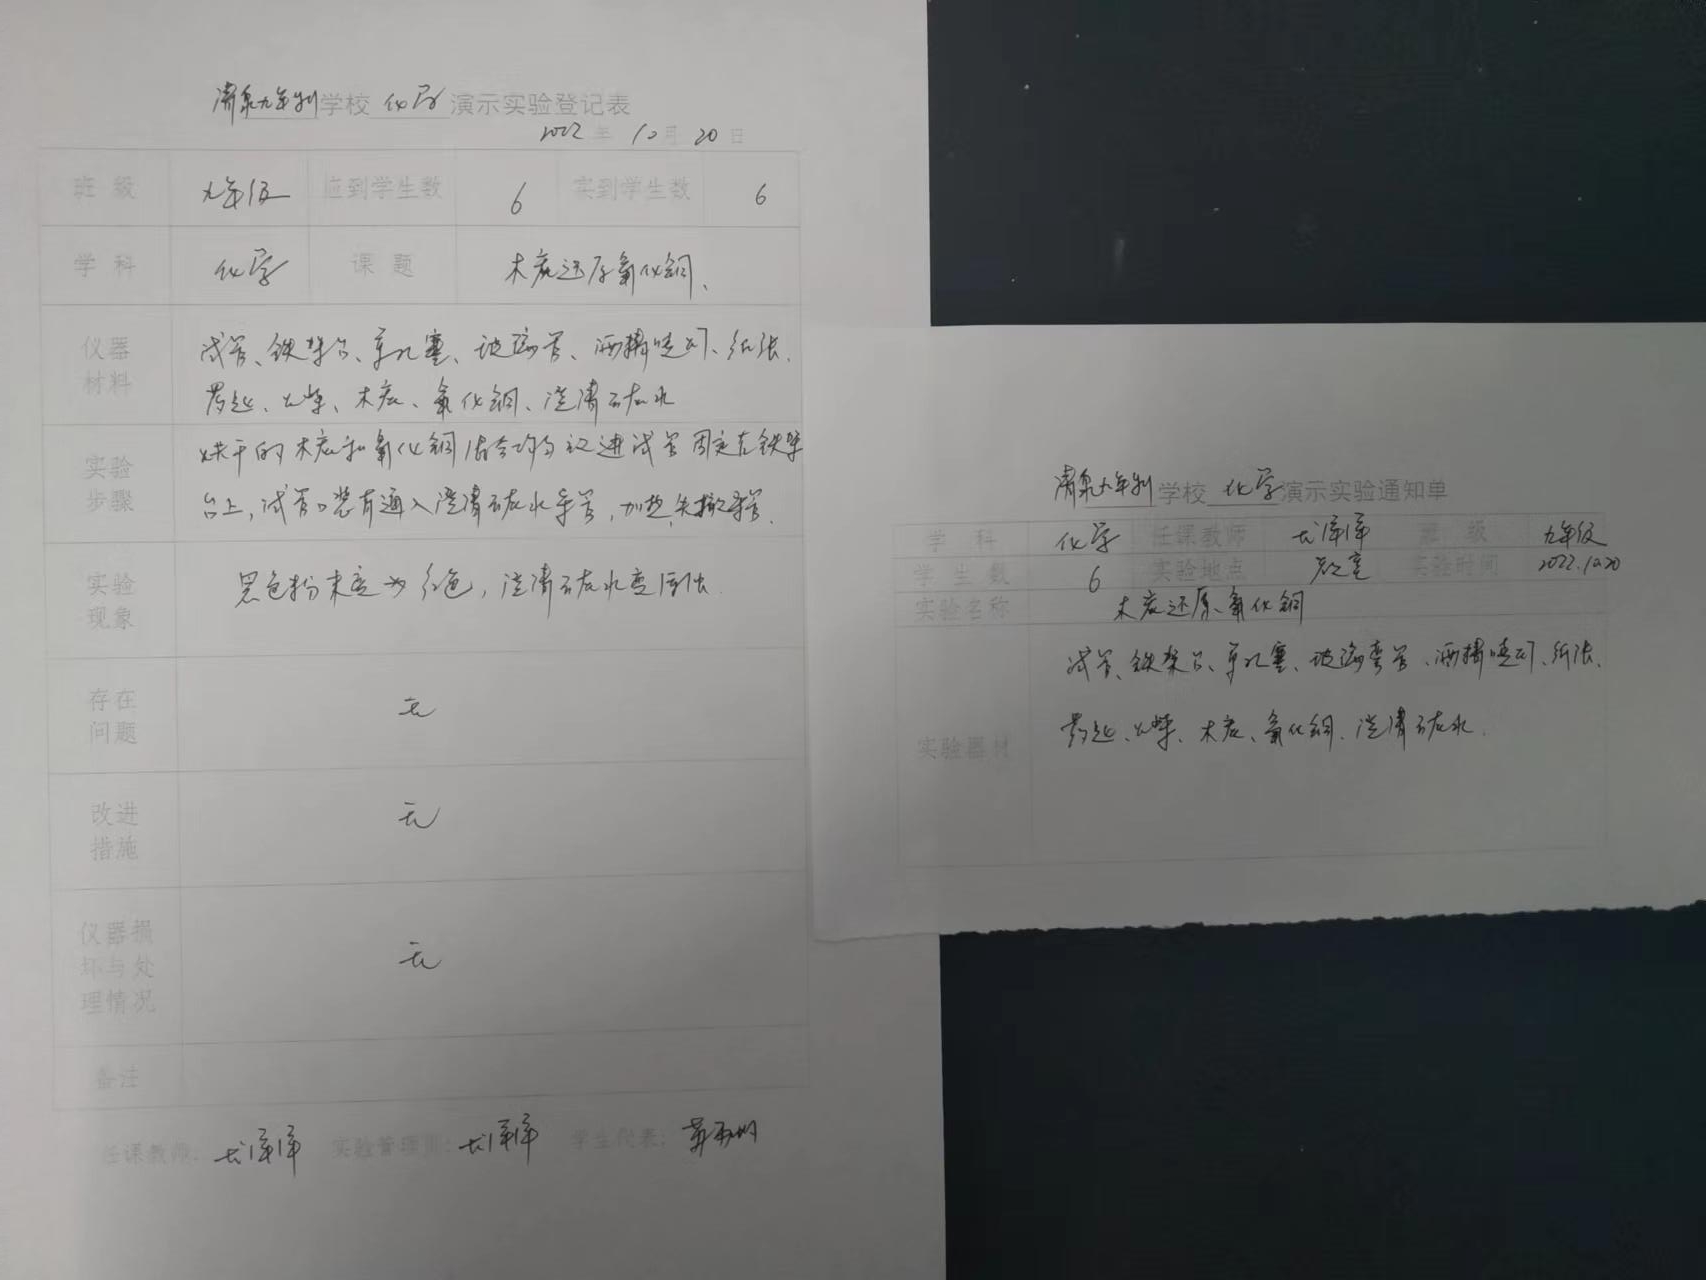 清泉九年制学校 化学 演示实验登记表
2022 年 10 月 20 日
班 级 九年级 应到学生数 6 实到学生数 6
学 科 化学 课 题 木炭还原氧化铜、
仪器
材料
试管、铁架台、单孔塞、玻璃管、酒精喷灯、纸张、
药匙、火柴、木炭、氧化铜、澄清石灰水
实验
步骤
烘干的木炭和氧化铜混合均匀放进试管固定在铁架
台上,试管口装有通入澄清石灰水导管,加热,先撤导管.
实验
现象
黑色粉末变为红色,澄清石灰水变浑浊.
存在
问题
无
改进
措施
无
仪器损
坏与处
理情况
无
备注
任课教师: 实验管理员: 学生代表:
清泉九年制学校 化学 演示实验通知单
学 科 化学 任课教师 班 级 九年级
学 生 数 6 实验地点 实验时间 2022.10.20
实验名称 木炭还原氧化铜
实验器材
试管、铁架台、单孔塞、玻璃弯管、酒精喷灯、纸张、
药匙、火柴、木炭、氧化铜、澄清石灰水.